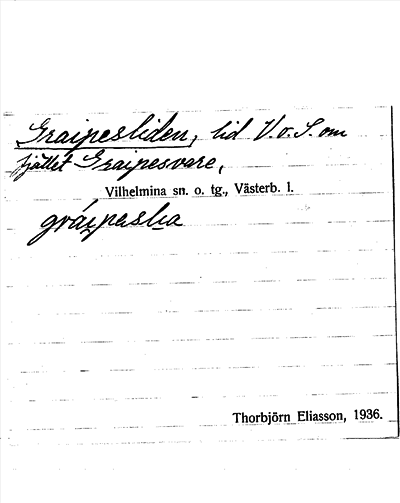 Graipesliden, lid V. o. S. om
fjället Graipesvare,
Vilhelmina sn. o. tg., Västerb. l.
Thorbjörn Eliasson, 1936.